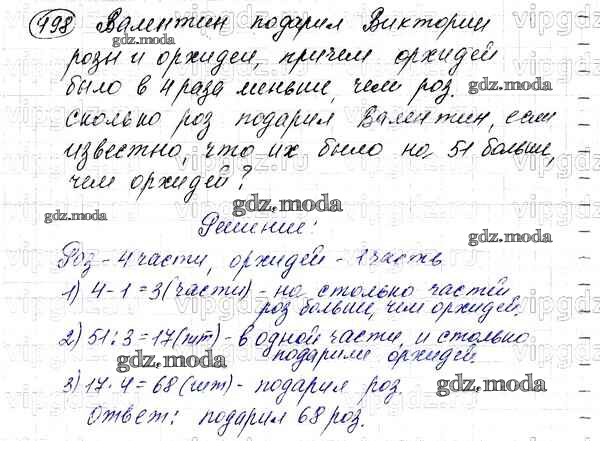 498 Валентин подарил Виктории
розы и орхидеи, причем орхидей
было в 4 раза меньше, чем роз.
gdz.moda
сколько роз подарил Валентин, если
известно, что их было на 51 больше,
чем орхидей?
gdz.moda
gdz.moda
Решение:
gdz.moda
Роз - 4 части, орхидей - 1 часть
1) 4-1=3 (части) - на столько частей
роз больше, чем орхидей.
2) 51:3=17(шт) - в одной части, и столько
подарили орхидей
gdz.moda
3) 17·4=68 (шт) - подарил роз.
gdz.moda
Ответ: подарил 68 роз.